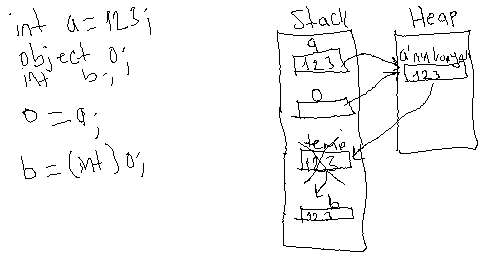 int a = 123;
object o;
int b;
o = a;
b = (int) o;
Stack
a
123
o
temp
123
b
123
Heap
a'nın kopyası
123